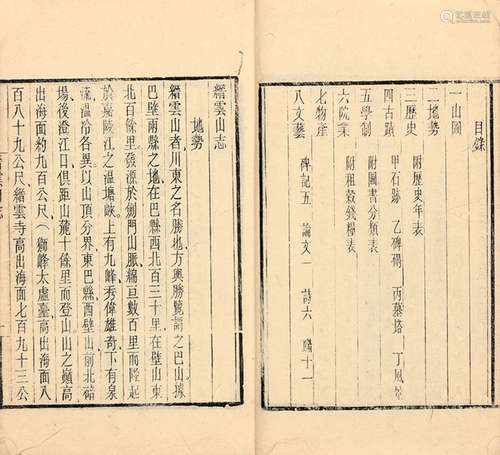 目錄
一山圖
二地勢
三歷史 附歷史年表
四古蹟 甲石跡 乙碑碣 丙墓塔 丁風景
五學制 附圖書分類表
六院業 附租穀錢糧表
七物產
八文藝 碑記五 論文一 詩六 聯十一
縉雲山志
地勢
縉雲山者川東之名勝也方輿勝覽謂之巴山據
巴璧兩縣之地在巴縣西北百三十里在璧山東
北百餘里發源於劍門山脈綿亘數百里而隆起
於嘉陵江之溫塘峽上有九峰秀偉雄奇下有泉
流溫冷各異以山頂分界東巴縣西璧山前北碚
場後澄江口俱距山麓十餘里而登山山之巔高
出海面約九百公尺（獅峰太虛臺高出海面八
百八十九公尺縉雲寺高出海面七百九十三公